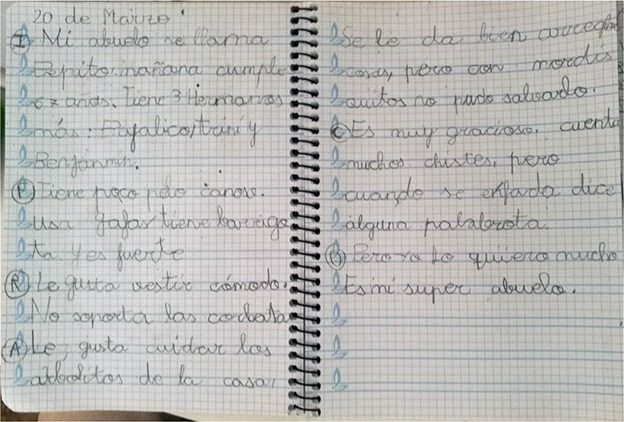 20 de Marzo.
I Mi abuelo se llama
Pepito. mañana cumple
67 años. Tiene 3 Hermanos
más: Rafalico, trini y
Benjanmin.
P Tiene poco pelo canoso.
Usa gafas tiene barrigo
ta y es fuerte
R Le gusta vestir cómodo.
No soporta las corbatas
A Le, gusta cuidar los
arbolitos de la casa,
Se le da bien arreglar
cosas, pero con mordis
quitos no pudo salvarlo.
C Es muy gracioso, cuenta
muchos chistes, pero
cuando se enfada dice
alguna palabrota.
Pero yo lo quiero mucho
Es mi super abuelo.